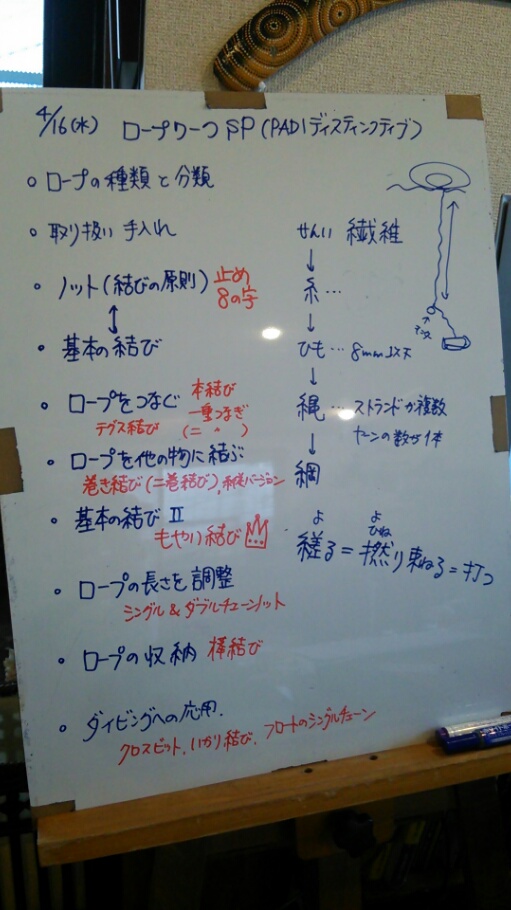 4/16(水) ロープワークSP(PADIディスティンクティブ)
○ ロープの種類と分類
・ 取り扱い 手入れ
・ ノット(結びの原則) 止め 8の字
・ 基本の結び
・ ロープをつなぐ 本結び
一重つなぎ
テグス結び (二 〃 )
・ ロープを他の物に結ぶ
巻き結び(二巻結び),
・ 基本の結びⅡ
もやい結び
・ ロープの長さを調整
シングル&ダブルチェーンノット
・ ロープの収納 棒結び
・ ダイビングへの応用.
クロスビット, いかり結び, フロートのシングルチェーン
せんい 繊維
↓
糸…
↓
ひも… 8mm以下
↓
縄… ストランドが複数
ヤーンの数が1本
↓
綱
よ よ ひね
縒る=撚り束ねる=打つ